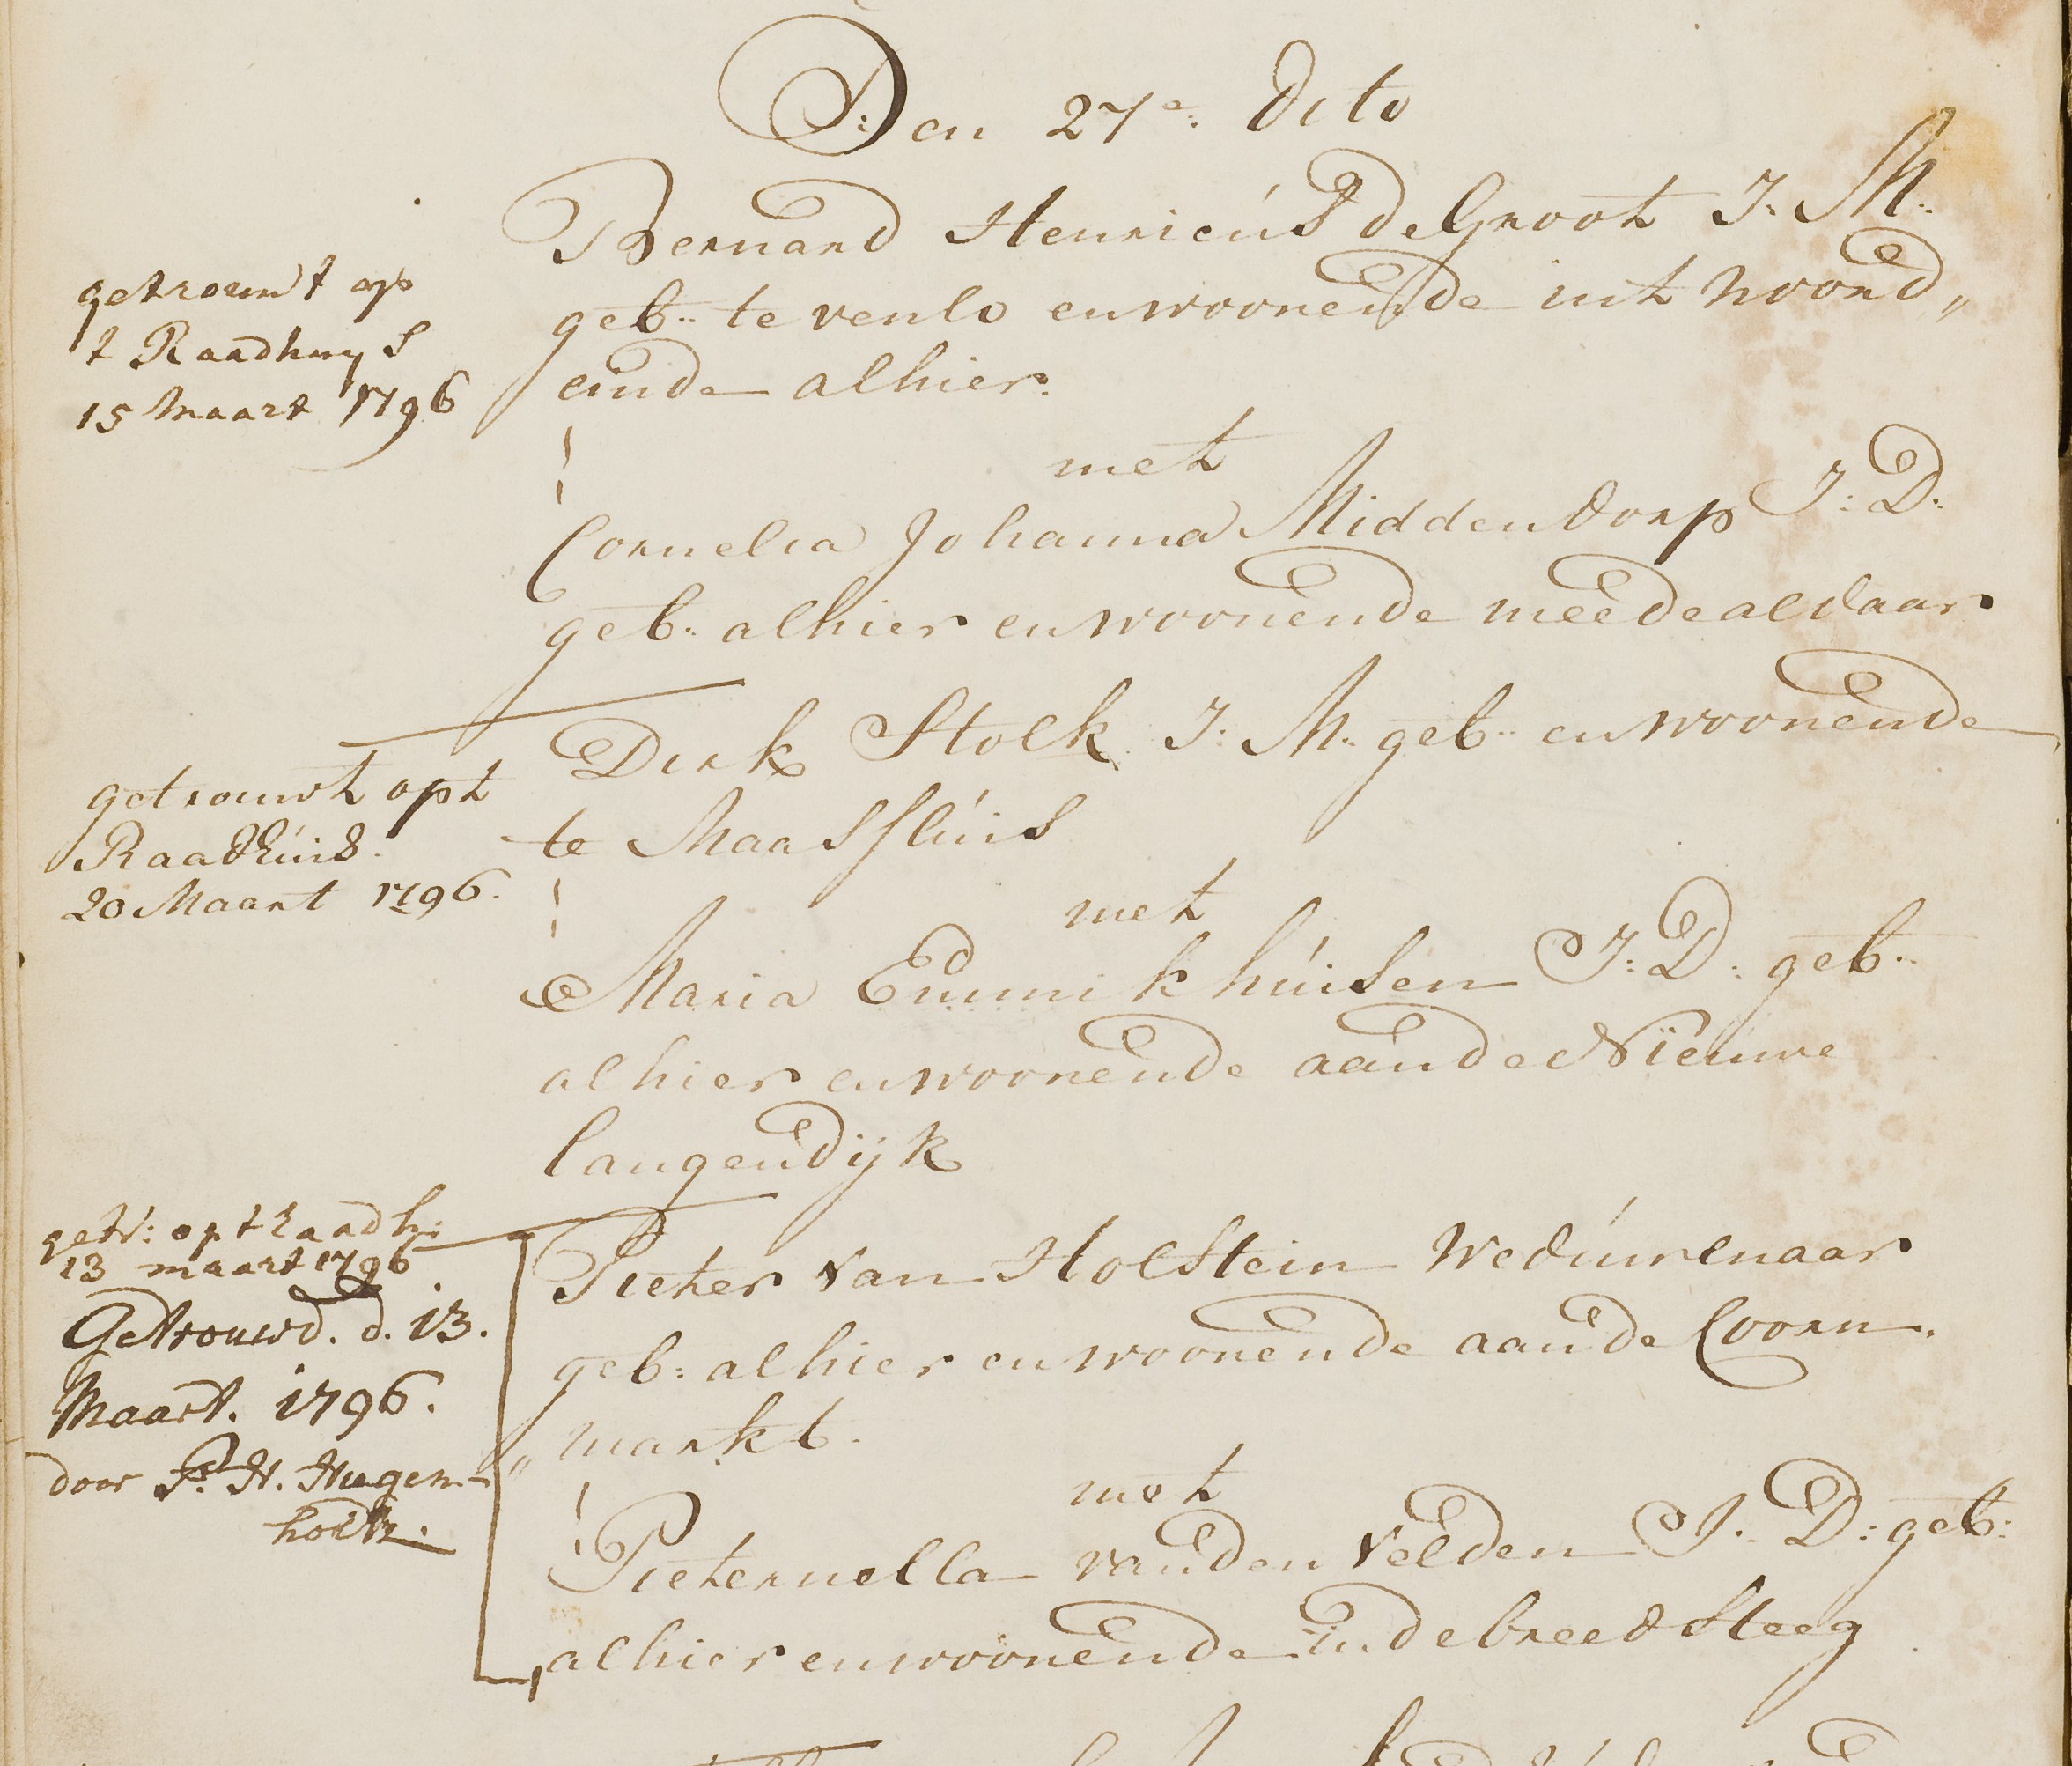 Den 27e. dito
Bernard Henricus de Groot J. M.
geb. te venlo en woonende int noord„
einde alhier.
met
Cornelia Johanna Middendorp J: D:
geb: alhier en woonende meede aldaar
getrouwt op
t Raadhuys
15 Maart 1796
Dirk Stolk J: M. geb. en woonende
te Maassluis
met
Maria Emmikhuisen J: D: geb.
alhier en woonende aan de Nieuwe
langendijk
getrouwt opt
Raadhuis.
20 Maart 1796.
Pieter van Holstein Weduwenaar
geb: alhier en woonende aan de Coorn„
„markt.
met
Pieternella van den Velden J. D: geb:
alhier en woonende in de breedsteeg
getr: opt raadh:
13 maart 1796
Getrouwd. d. 13.
Maart. 1796.
door P. H. Hugen-
holtz.